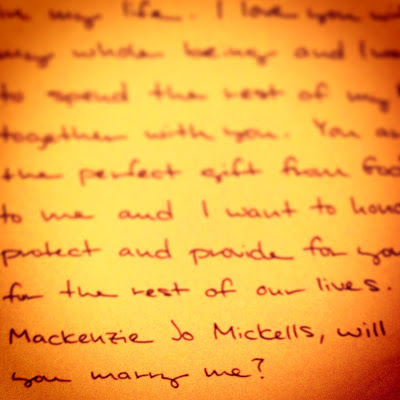 in my life. I love you wi
my whole being and I wa
to spend the rest of my l
together with you. You ar
the perfect gift from God
to me and I want to hono
protect and provide for yo
for the rest of our lives.
Mackenzie Jo Mickells, will
you marry me?